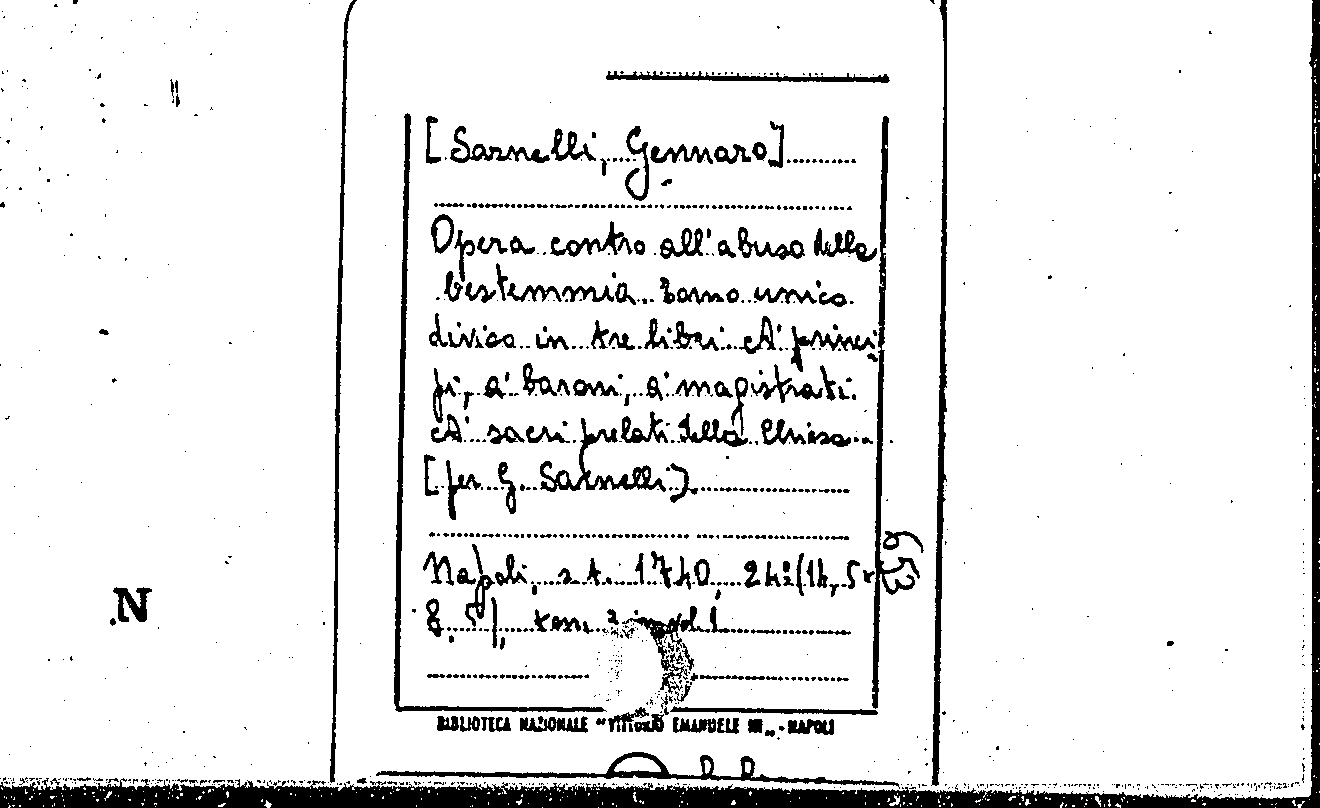 [Sarnelli, Gennaro]
Opera contro all'abuso della
bestemmia. Tomo unico
diviso in tre libri. A' princi
pi, a' baroni, a' magistrati.
A' sacri prelati della Chiesa...
[per G. Sarnelli].
Napoli, s.t. 1740, 24º (14,5x
8,5), tom. 3 in vol. 1
653
N
BIBLIOTECA NAZIONALE "VITTORIO EMANUELE III" - NAPOLI